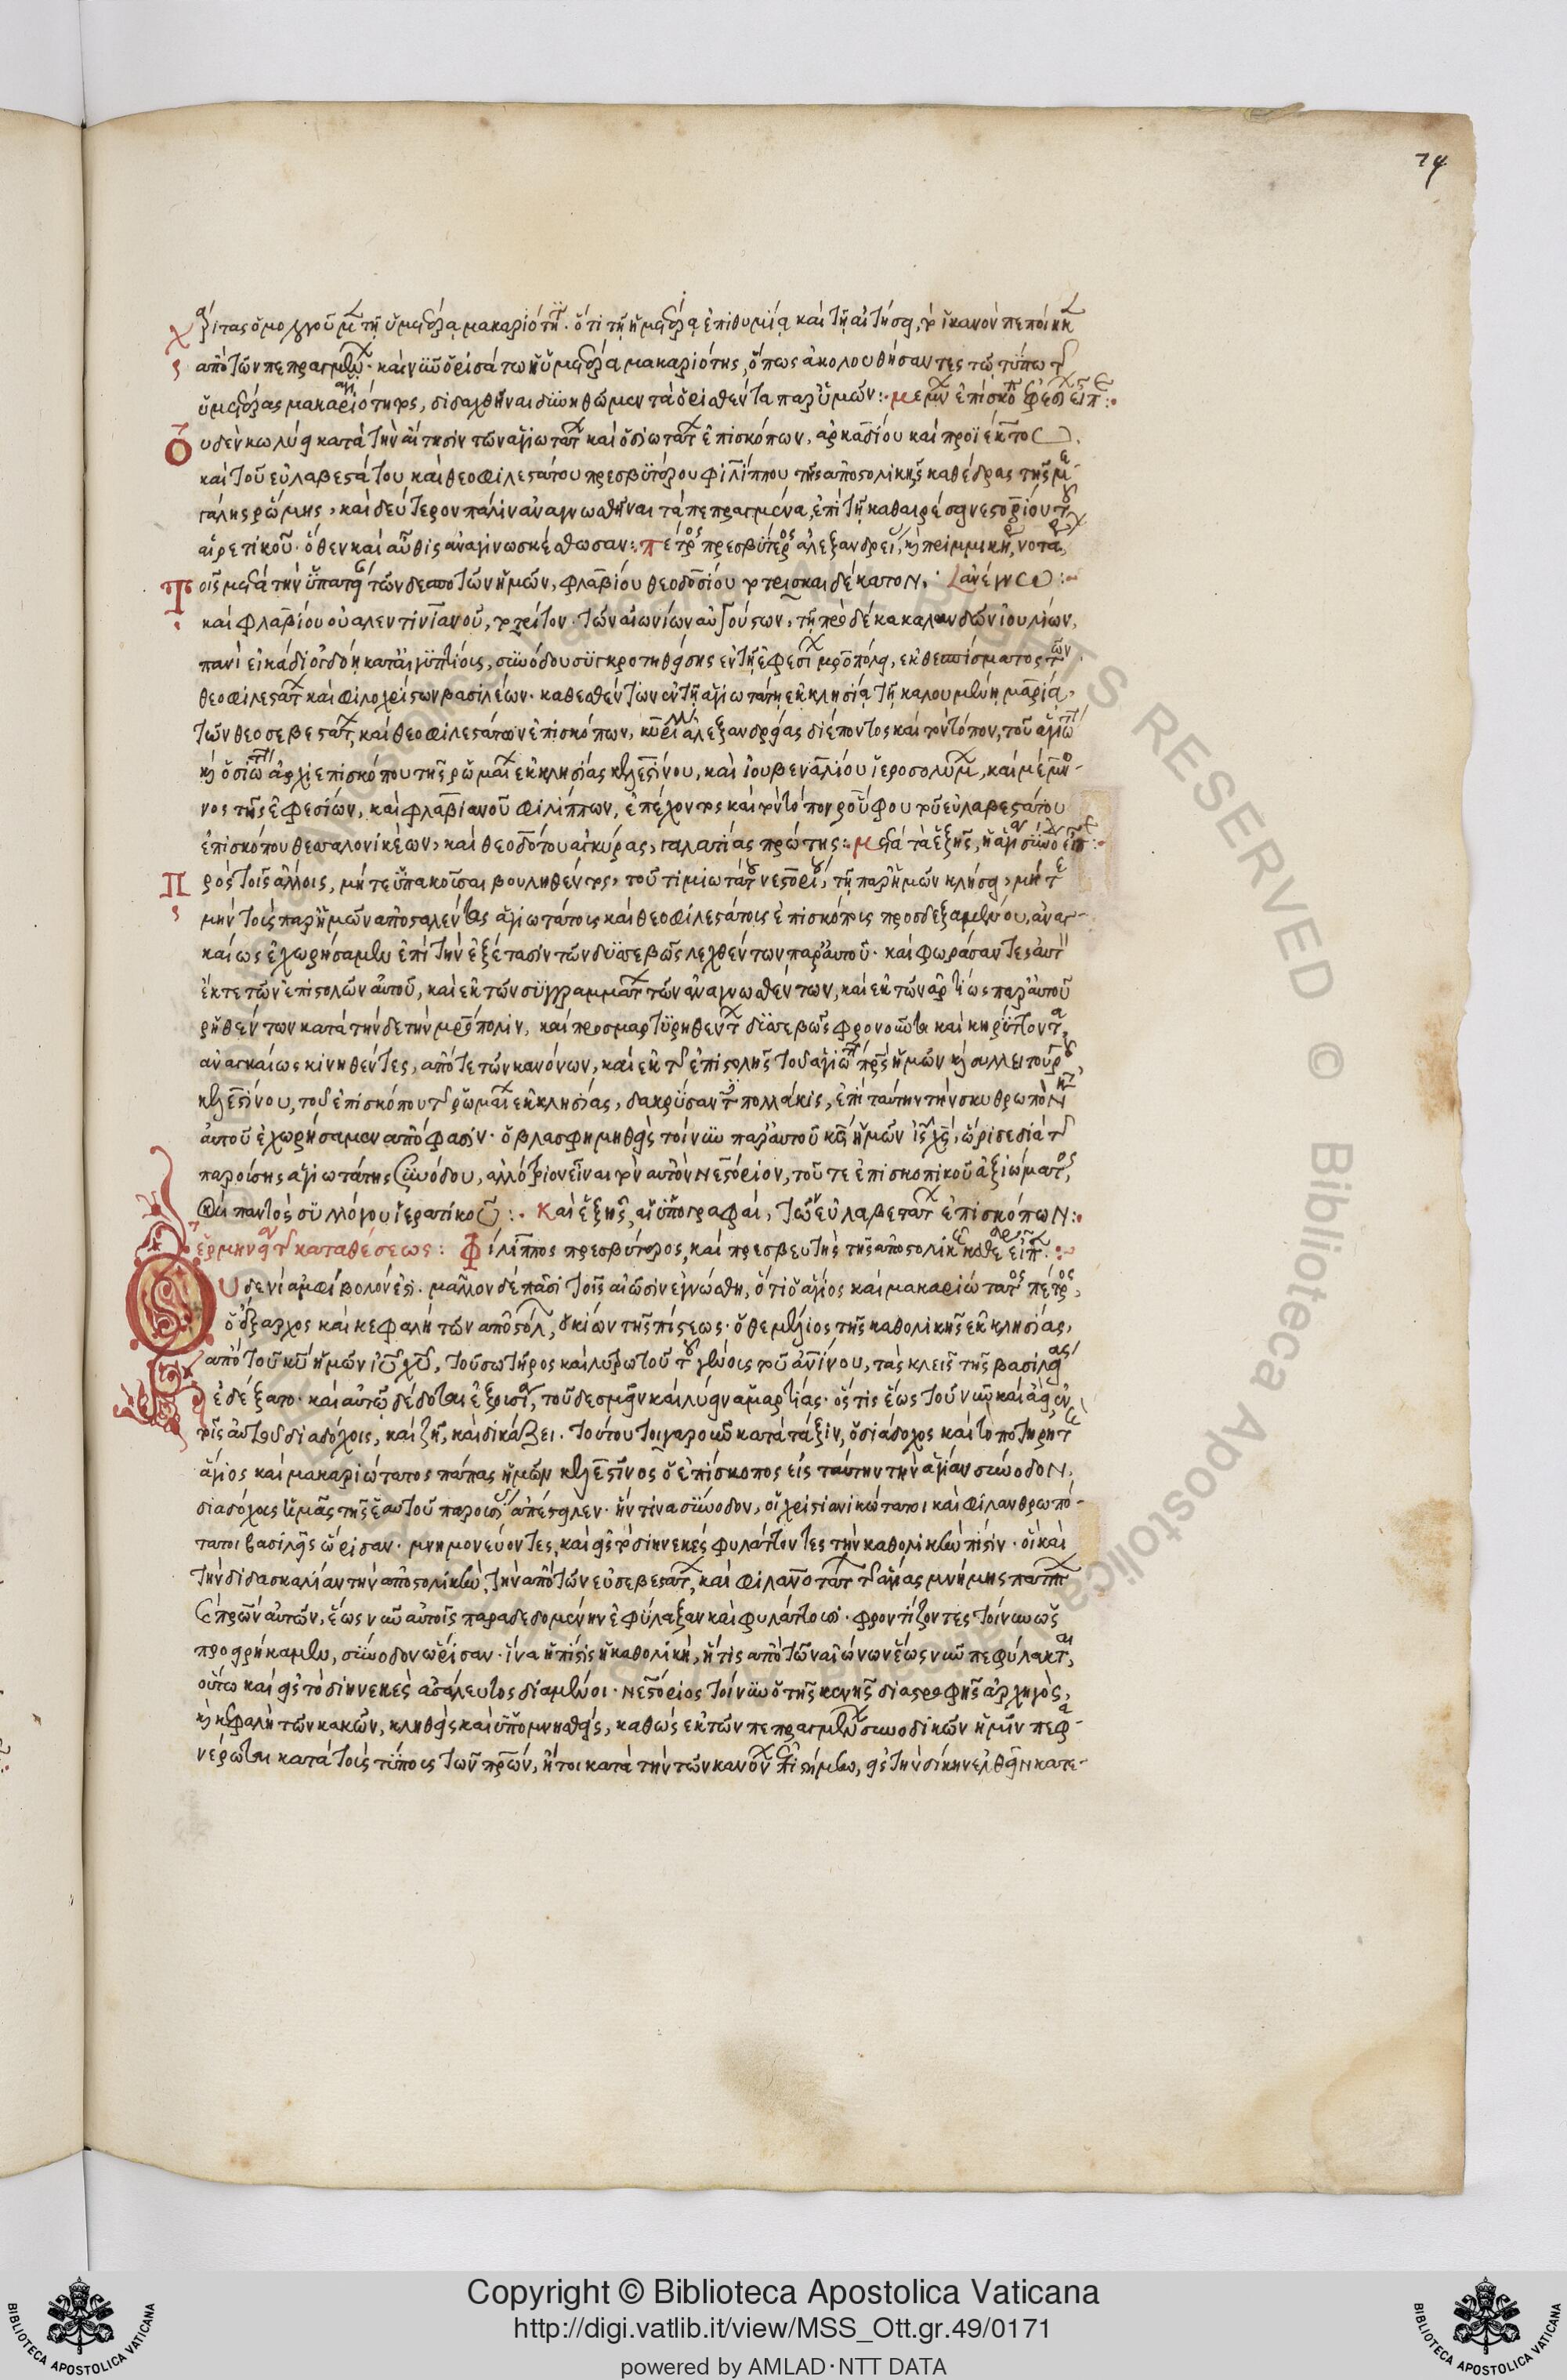 74
χάριτας ὁμολογοῦμεν τῇ ὑμετέρᾳ μακαριότητι. ὅτι τῇ ἡμετέρᾳ ἐπιθυμίᾳ καὶ τῇ αἰτήσει, τὸ ἱκανὸν πεποίηκεν
ἀπὸ τῶν πεπραγμένων. καὶ νῦν ὁρισάτω ἡ ὑμετέρα μακαριότης, ὅπως ἀκολουθήσαντες τῷ τύπῳ τῆς
ὑμετέρας μακαριότητος, διδαχθῆναι δυνηθῶμεν τὰ ὁρισθέντα παρ' ὑμῶν:· μέμνων ἐπίσκοπος ἐφέσου εἶπεν:·
Οὐδὲν κωλύει κατὰ τὴν αἴτησιν τῶν ἁγιωτάτων καὶ ὁσιωτάτων ἐπισκόπων, ἀρκαδίου καὶ προϊέκτου.
καὶ τοῦ εὐλαβεστάτου καὶ θεοφιλεστάτου πρεσβυτέρου φιλίππου τῆς ἀποστολικῆς καθέδρας τῆς με-
γάλης ῥώμης, καὶ δεύτερον πάλιν ἀναγνωσθῆναι τὰ πεπραγμένα, ἐπὶ τῇ καθαιρέσει νεστορίου τοῦ
αἱρετικοῦ. ὅθεν καὶ αὖθις ἀναγινωσκέσθωσαν: πέτρος πρεσβύτερος ἀλεξανδρείας, καὶ πριμμικήριος νοταρίων,
Τοῖς μετὰ τὴν ὑπατείαν τῶν δεσποτῶν ἡμῶν, φλαβίου θεοδοσίου τὸ τρισκαιδέκατον, ἀνέγνω:·
καὶ φλαβίου οὐαλεντινιανοῦ, τὸ τρίτον. τῶν αἰωνίων αὐγούστων, τῇ πρὸ δέκα καλανδῶν ἰουλίων,
παυνὶ εἰκάδι ὀγδόῃ κατ' αἰγυπτίοις, συνόδου συγκροτηθείσης ἐν τῇ ἐφεσίων μητροπόλει, ἐκ θεσπίσματος τῶν
θεοφιλεστάτων καὶ φιλοχρίστων βασιλέων. καθεσθέντων ἐν τῇ ἁγιωτάτῃ ἐκκλησίᾳ τῇ καλουμένῃ μαρίᾳ,
τῶν θεοσεβεστάτων, καὶ θεοφιλεστάτων ἐπισκόπων, κυρίλλου ἀλεξανδρείας διέποντος καὶ τὸν τόπον, τοῦ ἁγιωτάτου
καὶ ὁσιωτάτου ἀρχιεπισκόπου τῆς ῥωμαίων ἐκκλησίας κελεστίνου, καὶ ἰουβεναλίου ἱεροσολύμων, καὶ μέμνο-
νος τῆς ἐφεσίων, καὶ φλαβιανοῦ φιλίππων, ἐπέχοντος καὶ τὸν τόπον ῥούφου τοῦ εὐλαβεστάτου
ἐπισκόπου θεσσαλονικέων, καὶ θεοδότου ἀγκύρας, γαλατίας πρώτης:· μετὰ τὰ ἑξῆς, ἡ ἁγία σύνοδος εἶπεν:·
Πρὸς τοῖς ἄλλοις, μήτε ὑπακοῦσαι βουληθέντος, τοῦ τιμιωτάτου νεστορίου, τῇ παρ' ἡμῶν κλήσει, μήτε
μὴν τοὺς παρ' ἡμῶν ἀποσταλέντας ἁγιωτάτοις καὶ θεοφιλεστάτοις ἐπισκόποις προσδεξαμένου, ἀναγ-
καίως ἐχωρήσαμεν ἐπὶ τὴν ἐξέτασιν τῶν δυσσεβῶς λεχθέντων παρ' αὐτοῦ. καὶ φωράσαντες αὐτὸν
ἔκ τε τῶν ἐπιστολῶν αὐτοῦ, καὶ ἐκ τῶν συγγραμμάτων τῶν ἀναγνωσθέντων, καὶ ἐκ τῶν ἀρτίως παρ' αὐτοῦ
ῥηθέντων κατὰ τήνδε τὴν μητρόπολιν, καὶ προσμαρτυρηθέντων δυσσεβῶς φρονοῦντα καὶ κηρύττοντα,
ἀναγκαίως κινηθέντες, ἀπό τε τῶν κανόνων, καὶ ἐκ τῆς ἐπιστολῆς τοῦ ἁγιωτάτου πατρὸς ἡμῶν καὶ συλλειτουργοῦ,
κελεστίνου, τοῦ ἐπισκόπου τῆς ῥωμαίων ἐκκλησίας, δακρύσαντες πολλάκις, ἐπὶ ταύτην τὴν σκυθρωπὸν κατ'
αὐτοῦ ἐχωρήσαμεν ἀπόφασιν. ὁ βλασφημηθεὶς τοίνυν παρ' αὐτοῦ κύριος ἡμῶν ἰησοῦς χριστός, ὥρισε διὰ τῆς
παρούσης ἁγιωτάτης συνόδου, ἀλλότριον εἶναι τὸν αὐτὸν νεστόριον, τοῦ τε ἐπισκοπικοῦ ἀξιώματος,
καὶ παντὸς συλλόγου ἱερατικοῦ:· Καὶ ἑξῆς, αἱ ὑπογραφαί, τῶν εὐλαβεστάτων ἐπισκόπων:·
ἑρμηνεία τῆς καταθέσεως: Φίλιππος πρεσβύτερος, καὶ πρεσβευτὴς τῆς ἀποστολικῆς καθέδρας εἶπεν:·
Οὐδενὶ ἀμφίβολόν ἐστι. μᾶλλον δὲ πᾶσι τοῖς αἰῶσιν ἐγνώσθη, ὅτι ὁ ἅγιος καὶ μακαριώτατος πέτρος,
ὁ ἔξαρχος καὶ κεφαλὴ τῶν ἀποστόλων, ὁ κίων τῆς πίστεως. ὁ θεμέλιος τῆς καθολικῆς ἐκκλησίας,
ἀπὸ τοῦ κυρίου ἡμῶν ἰησοῦ χριστοῦ, τοῦ σωτῆρος καὶ λυτρωτοῦ τοῦ γένους τοῦ ἀνθρωπίνου, τὰς κλεῖς τῆς βασιλείας
ἐδέξατο. καὶ αὐτῷ δέδοται ἐξουσία, τοῦ δεσμεῖν καὶ λύειν ἁμαρτίας. ὅστις ἕως τοῦ νῦν καὶ ἀεὶ ἐν
τοῖς αὐτοῦ διαδόχοις, καὶ ζῇ, καὶ δικάζει. τούτου τοιγαροῦν κατὰ τάξιν, ὁ διάδοχος καὶ τοποτηρητὴς
ἅγιος καὶ μακαριώτατος πάπας ἡμῶν κελεστῖνος ὁ ἐπίσκοπος εἰς ταύτην τὴν ἁγίαν σύνοδον,
διαδόχους ἡμᾶς τῆς ἑαυτοῦ παρουσίας ἀπέστειλεν. ἥντινα σύνοδον, οἱ χριστιανικώτατοι καὶ φιλανθρωπό-
τατοι βασιλεῖς ὥρισαν. μνημονεύοντες, καὶ εἰς τὸ διηνεκὲς φυλάττοντες τὴν καθολικὴν πίστιν. οἳ καὶ
τὴν διδασκαλίαν τὴν ἀποστολικὴν, τὴν ἀπὸ τῶν εὐσεβεστάτων, καὶ φιλανθρωποτάτων τῆς ἁγίας μνήμης πάππων
καὶ πατέρων αὐτῶν, ἕως νῦν αὐτοῖς παραδεδομένην ἐφύλαξαν καὶ φυλάττουσι. φροντίζοντες τοίνυν ὡς
προειρήκαμεν, σύνοδον ὥρισαν. ἵνα ἡ πίστις ἡ καθολική, ἥτις ἀπὸ τῶν αἰώνων ἕως νῦν πεφύλακται,
οὕτω καὶ εἰς τὸ διηνεκὲς ἀσάλευτος διαμένοι. νεστόριος τοίνυν ὁ τῆς καινῆς διαστροφῆς ἀρχηγὸς,
καὶ κεφαλὴ τῶν κακῶν, κληθεὶς καὶ ὑπομνησθεὶς, καθὼς ἐκ τῶν πεπραγμένων συνοδικῶν ἡμῖν πεφα-
νέρωται κατὰ τοὺς τύπους τῶν πατέρων, ἤτοι κατὰ τὴν τῶν κανόνων ἐπιστήμην, εἰς τὴν δίκην ἐλθεῖν κατε-
Copyright © Biblioteca Apostolica Vaticana
http://digi.vatlib.it/view/MSS_Ott.gr.49/0171
powered by AMLAD·NTT DATA
BIBLIOTECA APOSTOLICA VATICANA
BIBLIOTECA APOSTOLICA VATICANA